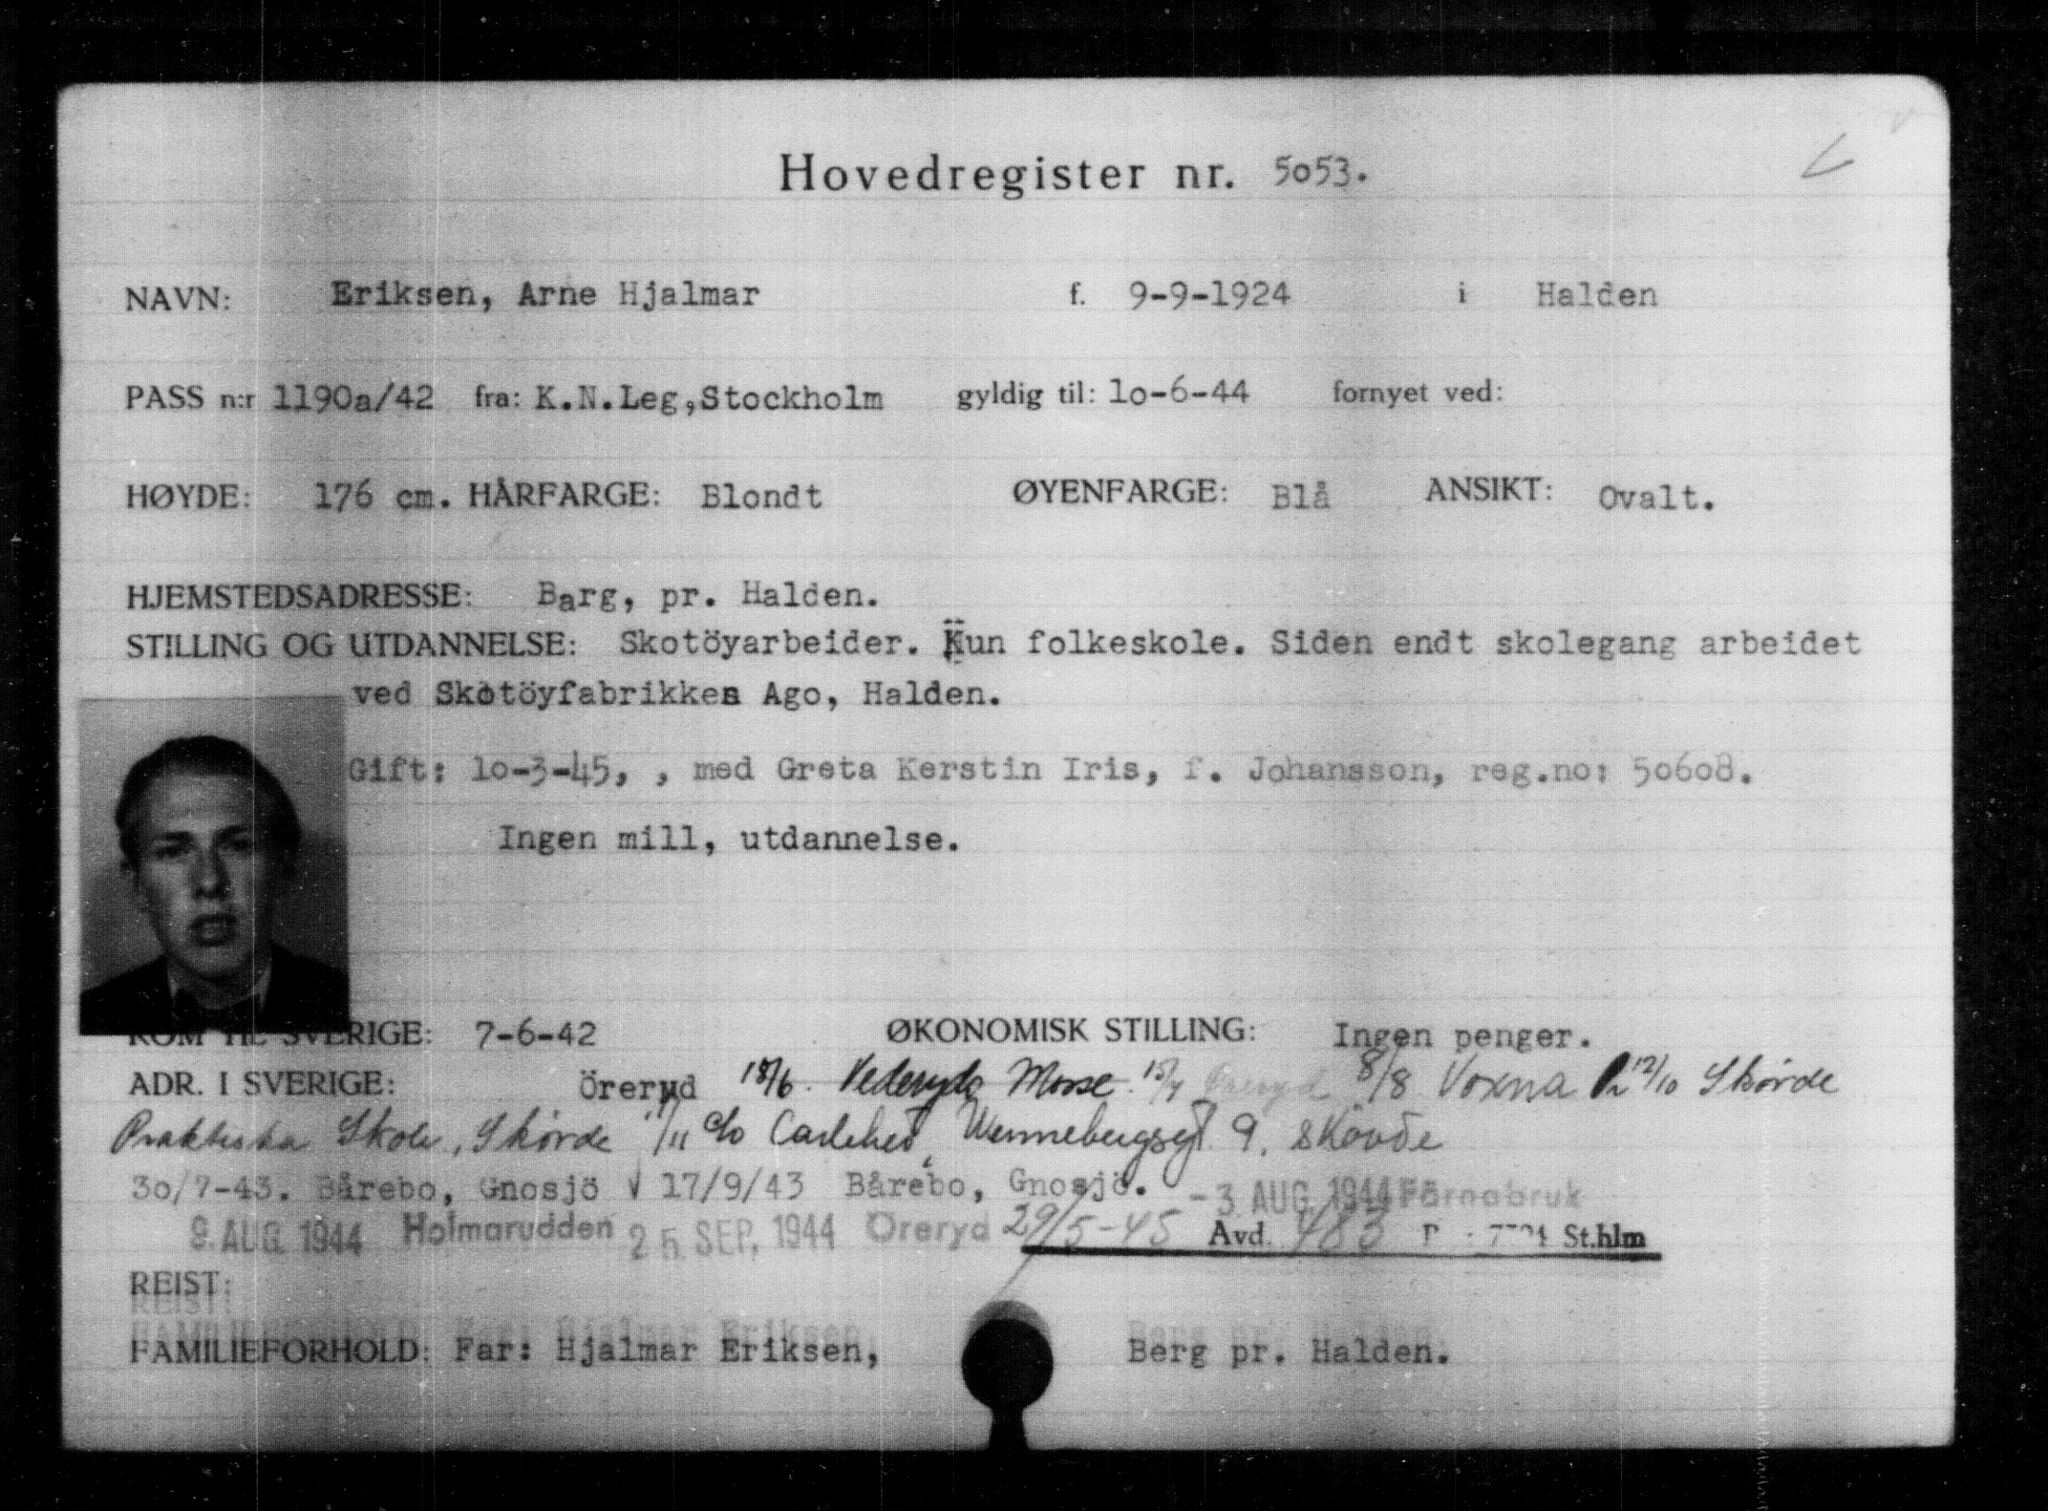 Hovedregister nr. 5053.
NAVN: Eriksen, Arne Hjalmar f. 9-9-1924 i Halden
PASS n:r 1190a/42 fra: K.N.Leg,Stockholm gyldig til: lo-6-44 fornyet ved:
HØYDE: 176 cm. HÅRFARGE: Blondt ØYENFARGE: Blå ANSIKT: Ovalt.
HJEMSTEDSADRESSE: Barg, pr. Halden.
STILLING OG UTDANNELSE: Skotöyarbeider. Kun folkeskole. Siden endt skolegang arbeidet
ved Skotöyfabrikken Ago, Halden.
Gift: lo-3-45, , med Greta Kerstin Iris, f. Johansson, reg.no: 50608.
Ingen mill, utdannelse.
KOM TIL SVERIGE: 7-6-42 ØKONOMISK STILLING: Ingen penger.
ADR. I SVERIGE: Öreryd 18/6 Vederyds Mosse 15/7 Öreryd 8/8 Voxna 12/10 Skövde
Praktiska Skole, Skövde 1/11 c/o Carlehed, Wennebergsg. 9, Skövde
30/7-43. Bårebo, Gnosjö 17/9/43 Bårebo, Gnosjö. -3. AUG. 1944 Färnabruk
9. AUG. 1944 Holmarudden 25. SEP. 1944 Öreryd 29/5-45 Avd. 483 St.hlm
REIST:
FAMILIEFORHOLD: Far: Hjalmar Eriksen, Berg pr. Halden.